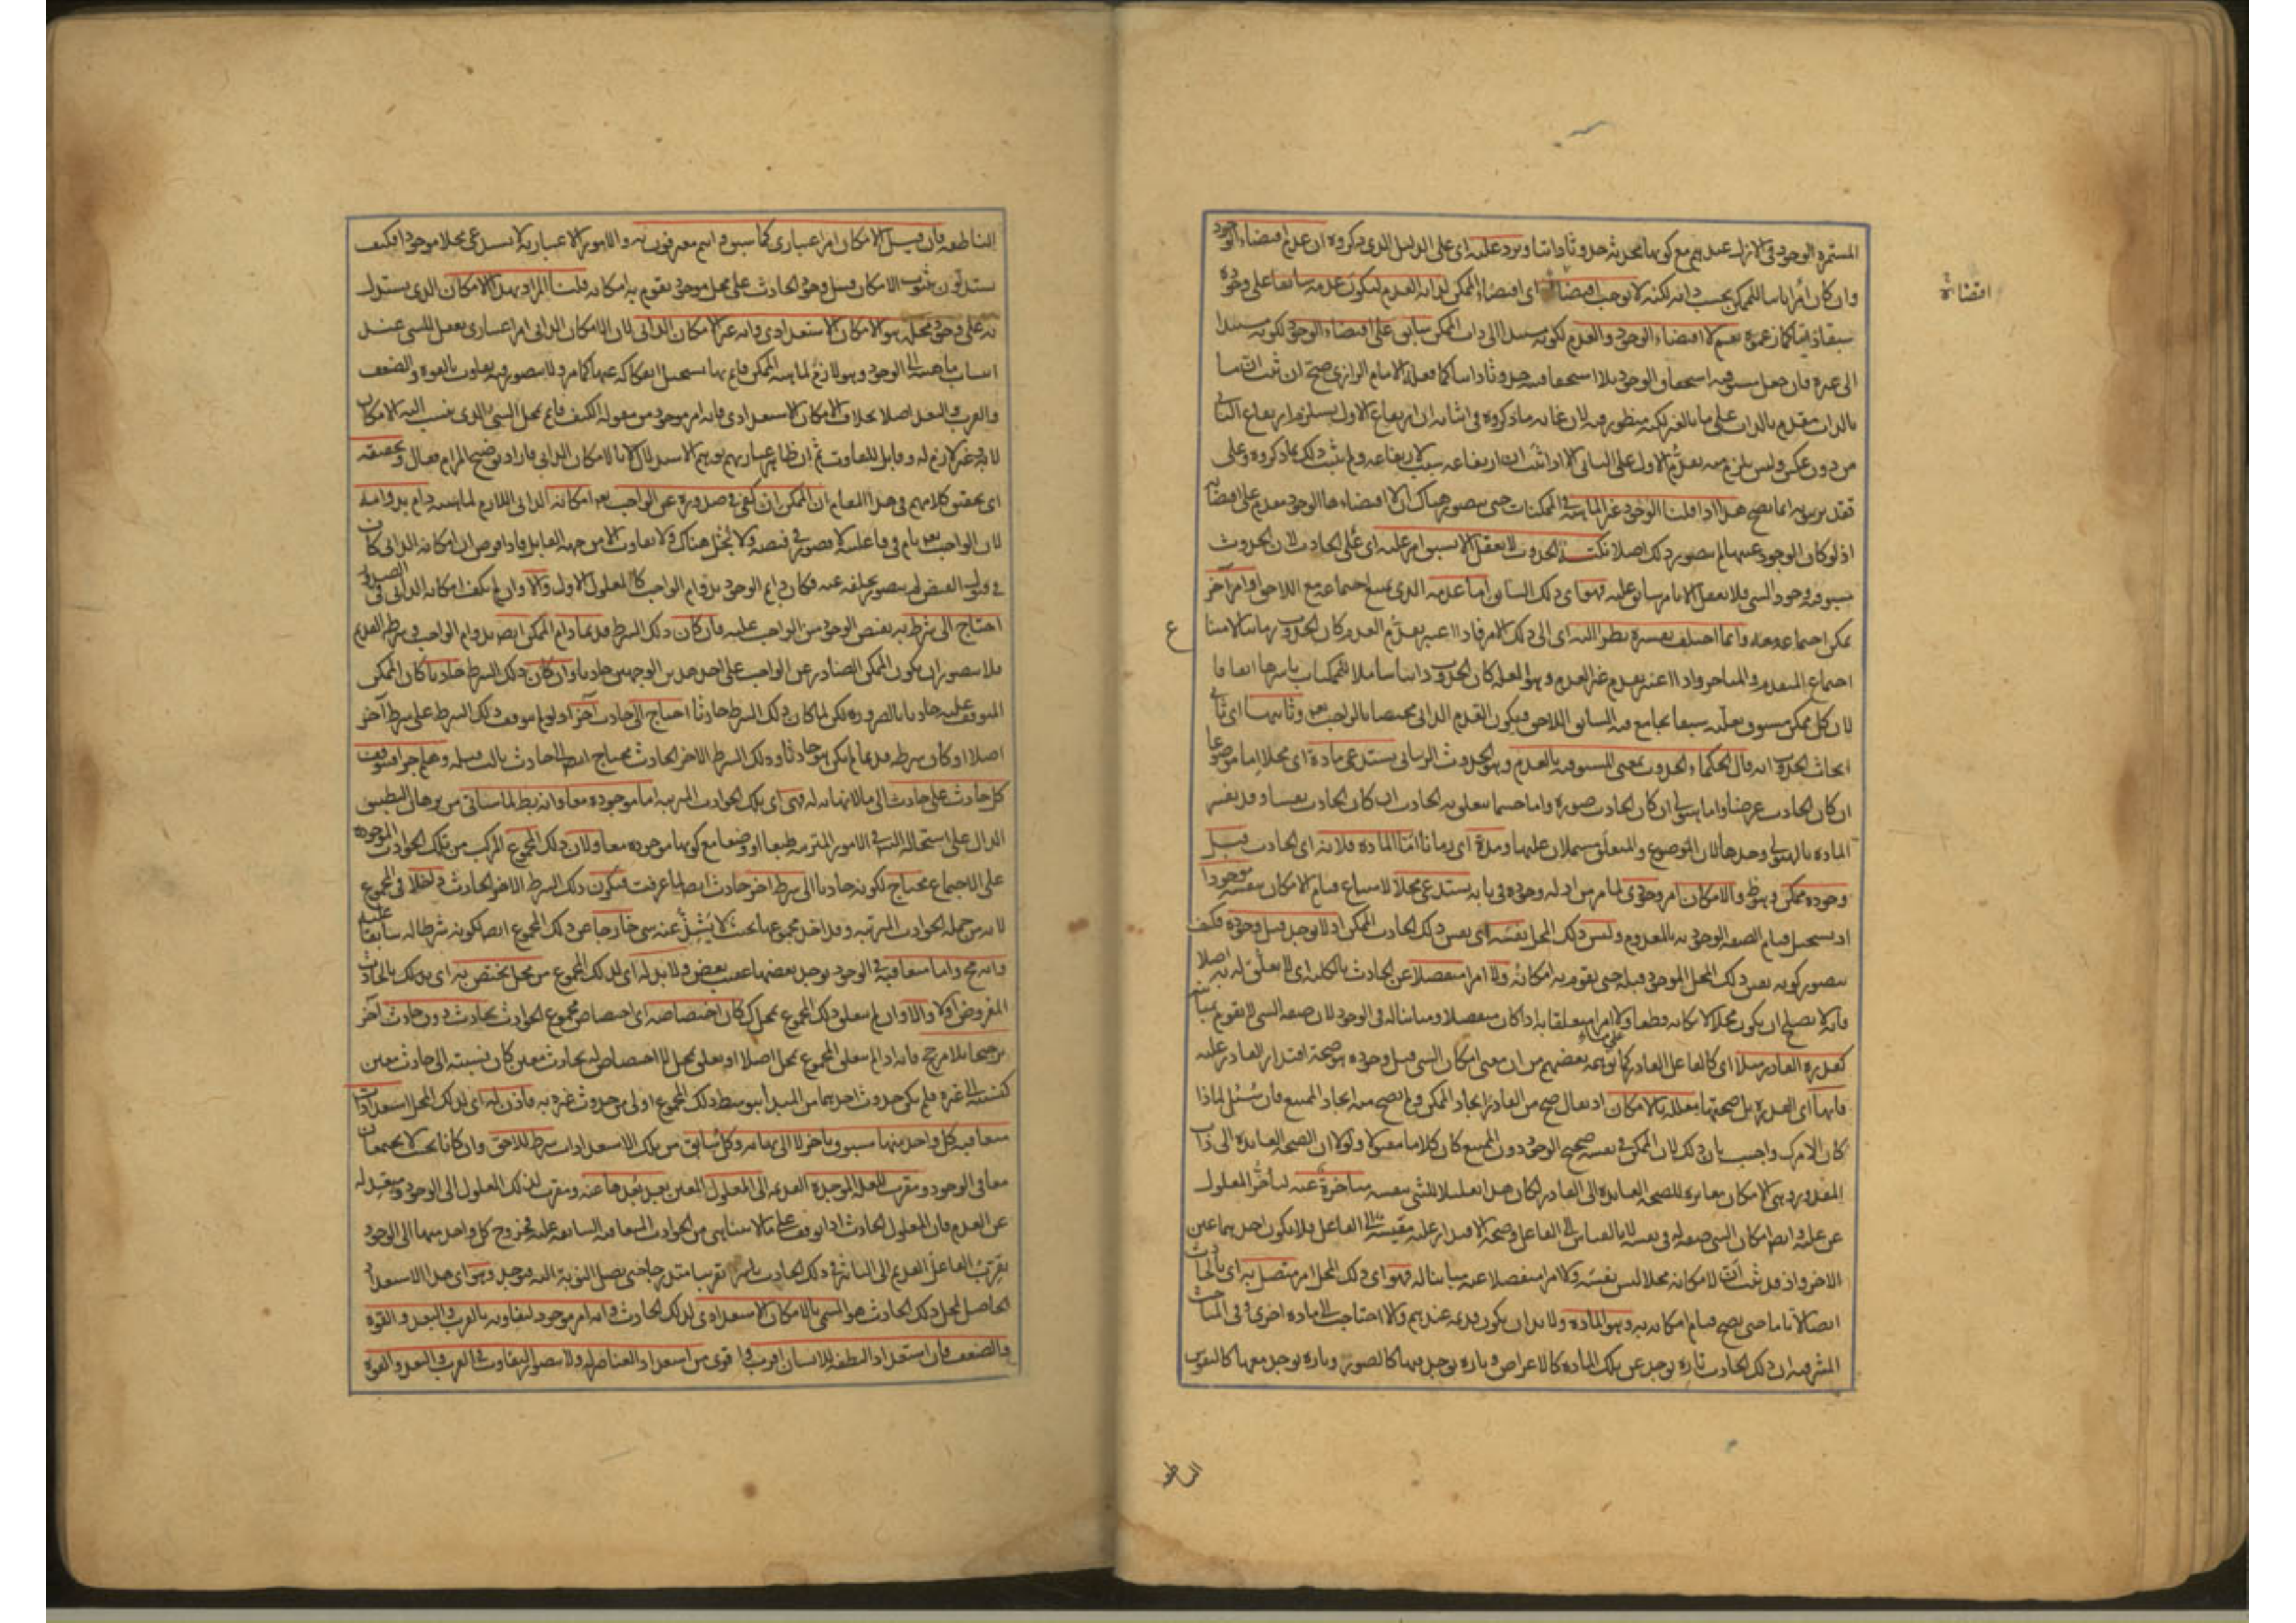 المستمرة الوجود في الازل عندهم مع كونها محدثة حدوثا ذاتيا ويرد عليه اى على الدليل الذى ذكروه ان عدم اقتضاء الوجود
وان كان أمرا ثابتا للممكن بحسب ذاته لكنه لا يوجب اقتضاء اى اقتضاء الممكن لذاته العدم ليكون عدمه سابقا على وجوده
اقتضاءه
سبقا ذاتيا كما زعموه نعم لا اقتضاء الوجود والعدم لكونه مستندا الى ذات الممكن سابق على اقتضاء الوجود لكونه مستندا
الى غيره فان جعل مسبوقية استحقاق الوجود بلا استحقاقيته حدوثا ذاتيا كما فعله الامام الرازى صح ان ثبت ان ما
بالذات مقدم بالذات على ما بالغير لكنه منظور فيه لان غاية ما ذكروه فى اثباته ان ارتفاع الاول يستلزم ارتفاع الثانى
من دون عكس وليس يلزم منه تقدم الاول على الثانى الا اذا ثبت ان ارتفاعه سبب لارتفاعه ولم يثبت ذلك بما ذكروه وعلى
تقدير ثبوته انما يصح هذا اذا قلنا الوجود غير الماهية فى الممكنات حتى يتصور هناك ان لا اقتضاءها الوجود مقدم على اقتضائه
اذ لو كان الوجود عينها لم يتصور ذلك اصلا نكتة الحدوث لا يعقل الا بسبق امر عليه اى على الحادث لان الحدوث
مسبوقية وجود الشى فلا يعقل الا بامر سابق عليه فهو اى ذلك السابق اما عدمه الذى يمتنع اجتماعه مع اللاحق او امر آخر
يمكن اجتماعه معه وانما اختلف تفسيره نظرا اليه اى الى ذلك الامر فاذا اعتبر تقدم العدم كان الحدوث زمانيا لامتناع
اجتماع المتقدم والمتاخر واذا اعتبر تقدم غير العدم وهو العلة كان الحدوث ذاتيا شاملا للممكنات باسرها اتفاقا
لان كل ممكن مسبوق بعلته سبقا يجامع فيه السابق اللاحق فيكون القدم الذاتى مختصا بالواجب تعه وثانيهما اى ثانى
ابحاث الحدوث انه قال الحكماء الحدوث بمعنى المسبوقية بالعدم وهو الحدوث الزمانى يستدعى مادة اى محلا اما موضوعا
ان كان الحادث عرضا واما هيولى ان كان الحادث صورة واما جسما يتعلق به الحادث ان كان الحادث نفسا وقد يفسر
المادة بالهيولى وحدها لان الموضوع والمتعلق مشتملان عليها ومدة اى زمانا اما المادة فلانه اى الحادث قبل
وجوده ممكن وهو ظ والامكان امر وجودى لما مر من ادلة وجوده فى بابه يستدعى محلا لامتناع قيام الامكان بنفسه موجودا
اذ يستحيل قيام الصفة الوجودية بالمعدوم وليس ذلك المحل نفسه اى نفس ذلك الحادث الممكن اذ لا يوجد قبل وجوده فكيف
يتصور كونه نفس ذلك المحل الموجود قبله حتى يقوم به امكانه ولا امرا منفصلا عن الحادث بالكلية اى لا تعلق له به اصلا
فانه لا يصلح ان يكون محلا لامكانه قطعا ولا امرا متعلقا به اذا كان منفصلا ومباينا له فى الوجود لان صفة الشى لا تقوم بمباينه
كقدرة القادر مثلا اى كالفاعل القادر كما توهمه بعضهم من ان معنى امكان الشى قبل وجوده هو صحة اقتدار القادر عليه
فانها اى القدرة بل صحتها معللة بالامكان اذ يقال صح من القادر ايجاد الممكن ولم يصح منه ايجاد الممتنع فان سئل لماذا
كان الامر كذلك واجيب بان ذلك لان الممكن فى نفسه صحيح الوجود دون الممتنع كان كلاما معقولا ولولا ان الصحة العائدة الى ذات
المقدور وهى الامكان مغايرة للصحة العائدة الى القادر لكان هذا تعليلا للشى بنفسه متاخرة عنه لتأخر المعلول
عن علته وايضا امكان الشى صفة له فى نفسه لا بالقياس الى الفاعل وصحة الاقتدار عليه مقيسة الى الفاعل فلا يكون احدهما عين
الاخر واذ قد ثبت ان لامكانه محلا ليس نفسه ولا امرا منفصلا عنه مباينا له فهو اى ذلك المحل امر متصل به اى بالحادث
اتصالا تاما حتى يصح قيام امكانه به وهو المادة ولا بد ان يكون قديمة عندهم والا احتاجت الى مادة اخرى وفى المباحث
المشرقية ان ذلك الحادث تارة يوجد عن تلك المادة كالاعراض وتارة يوجد فيها كالصور وتارة يوجد معها كالنفوس
الناطقه
الناطقة فان قيل الامكان امر اعتبارى كما سبق وانتم معترفون به والامور الاعتبارية لا تستدعى محلا موجودا فكيف
يستدلون بثبوت الامكان قبل وجود الحادث على محل موجود يقوم به امكانه قلنا المراد بهذا الامكان الذى يستدل
به على وجود محله هو الامكان الاستعدادى وانه غير الامكان الذاتى لان الامكان الذاتى امر اعتبارى يعقل للشى عند
انتساب ماهيته الى الوجود وهو لازم لماهية الممكن قائم بها يستحيل انفكاكه عنها كما مر ولا يتصور فيه تفاوت بالقوة والضعف
والقرب والبعد اصلا بخلاف الامكان الاستعدادى فانه امر موجود من مقولة الكيف قائم بمحل الشى الذى ينسب اليه الامكان
لا به وغير لازم له وقابل للتفاوت ثم ان ظاهر عبارتهم يوهم الاستدلال بالامكان الذاتى فاراد توضيح المرام فقال وتحقيقه
اى تحقيق كلامهم فى هذا المقام ان الممكن ان كفى فى صدوره عن الواجب تعه امكانه الذاتى اللازم لماهيته دام بدوامه
لان الواجب تعه تام فى فاعليته لا قصور فى فيضه ولا بخل هناك ولا تفاوت الا من جهة القابل فاذا فرض ان امكانه الذاتى كان
فى قبول الفيض لم يتصور تخلفه عنه فكان دائم الوجود بدوام الواجب كالمعلول الاول والا وان لم يكف امكانه الذاتى فى الصدور
احتاج الى شرط به يفيض الوجود من الواجب عليه فان كان ذلك الشرط قديما دام الممكن ايضا بدوام الواجب وشرطه القديم
فلا يتصور ان يكون الممكن الصادر عن الواجب على احد هذين الوجهين حادثا وان كان ذلك الشرط حادثا كان الممكن
المتوقف عليه حادثا بالضرورة لكن لما كان ذلك الشرط حادثا احتاج الى حادث آخر اذ لو لم يتوقف ذلك الشرط على شرط آخر
اصلا او كان شرطه قديما لم يكن هو حادثا وذلك الشرط الاخر الحادث محتاج ايضا الى حادث ثالث قبله وهلم جرا فتوقف
كل حادث على حادث الى ما لا نهاية له فهى اى تلك الحوادث المترتبة اما موجودة معا وانه بط لما سيأتى من برهان التطبيق
الدال على استحالة التس فى الامور المترتبة طبعا او وضعا مع كونها موجودة معا ولان ذلك المجموع المركب من تلك الحوادث الموجودة
على الاجتماع محتاج لكونه حادثا الى شرط اخر حادث ايضا لما عرفت فيكون ذلك الشرط الاخر الحادث داخلا فى المجموع
لانه من جملة الحوادث المترتبة وقد اخذ مجموعها بحيث لا يشذ عنه شى خارجا عن ذلك المجموع ايضا لكونه شرطا له سابقا عليه
وانه مح واما متعاقبة فى الوجود يوجد بعضها عقيب بعض ولا بد له اى لذلك المجموع من محل يختص به اى بذلك بالحادث
المفروض اولا والا وان لم يتعلق ذلك المجموع بمحل كذلك كان اختصاصه اى اختصاص مجموع الحوادث بحادث دون حادث آخر
ترجيحا بلا مرجح فانه اذا لم يتعلق المجموع بمحل اصلا او تعلق بمحل لا اختصاص له بحادث معين كان نسبته الى حادث معين
كنسبته الى غيره فلم يكن حدوث احدهما من المبدا بتوسط ذلك المجموع اولى من حدوث غيره به فاذن له اى لذلك المحل استعدادات
متعاقبة كل واحد منها مسبوق باخر لا الى نهاية وكل سابق من تلك الاستعدادات شرط للاحق وان كانا بحيث لا يجتمعان
معا فى الوجود ومقرب للعلة الموجدة القديمة الى المعلول المعين بعد بعدها عنه ومقرب لذلك المعلول الى الوجود ومبعد له
عن العدم فان المعلول الحادث اذا توقف على ما لا يتناهى من الحوادث المتعاقبة السابقة عليه فخروج كل واحد منها الى الوجود
يقرب الفاعل القديم الى التاثير فى ذلك الحادث تقريبا متدرجا حتى تصل النوبة اليه فيوجد وهو اى هذا الاستعداد
الحاصل لمحل ذلك الحادث هو المسمى بالامكان الاستعدادى لذلك الحادث وانه امر موجود لتفاوته بالقرب والبعد والقوة
والضعف فان استعداد النطفة للانسان اقرب واقوى من استعداد العناصر له ولا يتصور التفاوت فى القرب والبعد والقوة